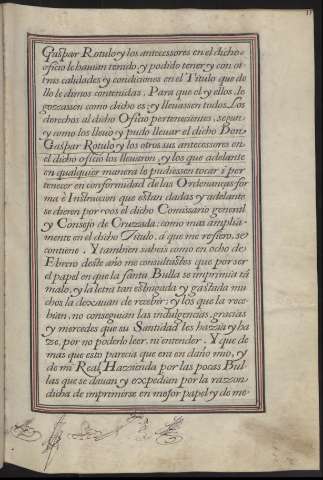 Gaspar Rotulo y los antecessores en el dicho
oficio le hauian tenido, y podido tener y con ot-
tras calidades y condiciones en el Titulo que de
llo le dimos contenidas. Para que el y ellos le
gozassen como dicho es; y lleuassen todos Los
derechos al dicho Oficio pertenecientes, segun
y como los lleuo y pudo lleuar el dicho Don
Gaspar Rotulo y los otros sus antecessores en
el dicho oficio los lleuaron, y los que adelante
en qualquier manera le pudiessen tocar i per
tenecer en conformidad de las Ordenanças for
ma è Instrucion que estan dadas y adelante
se dieren por vos el dicho Comissario general
y Consejo de Cruzada: como mas amplia-
mente en el dicho Titulo, à que me refiero, se
contiene. Y tambien sabeis como en ocho de
Ebrero deste año me consultastes que por ser
el papel en que la santa Bulla se imprimia tã
malo, y la letra tan esbugada y gastada mu
chos la dexauan de receber: y los que la rece
bian, no conseguian las indulgencias, gracias
y mercedes que su Santidad les hazia y ha
ze, por no poderlo leer, ni entender. Y que de
mas que esto parecia que era en daño mio, y
de mi Real Hazienda por las pocas Bul
las que se dauan y expedian por la razon
dicha de imprimirse en mejor papel y de me-